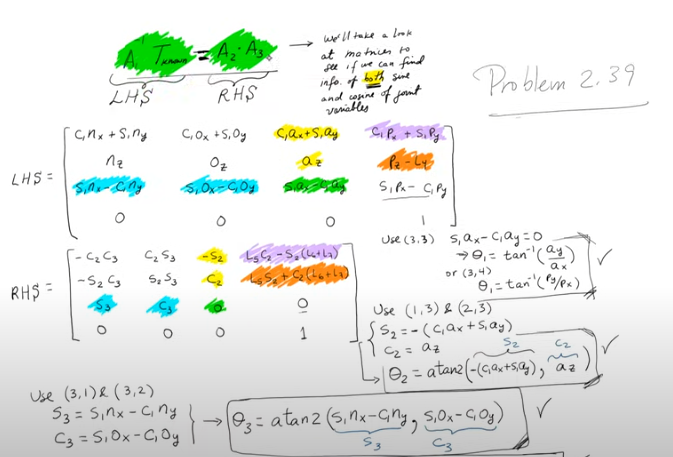 A₁⁻¹ T_known = A₂ · A₃ →
LHS RHS
We'll take a look
at matrices to
see if we can find
info. of both sine
and cosine of joint
variables
Problem 2.39
LHS =
C₁nx + S₁ny C₁Ox + S₁Oy C₁ax + S₁ay C₁Px + S₁Py
nz Oz az Pz - L4
S₁nx - C₁ny S₁Ox - C₁Oy S₁ax - C₁ay S₁Px - C₁Py
0 0 0 1
RHS =
-C₂C₃ C₂S₃ -S₂ L5C₂ - S₂(L6+L7)
-S₂C₃ S₂S₃ C₂ L5S₂ + C₂(L6+L7)
S₃ C₃ 0 0
0 0 0 1
Use (3,3) S₁ax - C₁ay = 0
→ θ₁ = tan⁻¹(ay/ax) ✓
or (3,4)
θ₁ = tan⁻¹(Py/Px)
Use (1,3) & (2,3)
S₂ = -(C₁ax + S₁ay)
C₂ = az
S₂ C₂
→ θ₂ = atan2(-(C₁ax+S₁ay), az) ✓
Use (3,1) & (3,2)
S₃ = S₁nx - C₁ny
C₃ = S₁Ox - C₁Oy
→ θ₃ = atan2(S₁nx - C₁ny, S₁Ox - C₁Oy) ✓
S₃ C₃